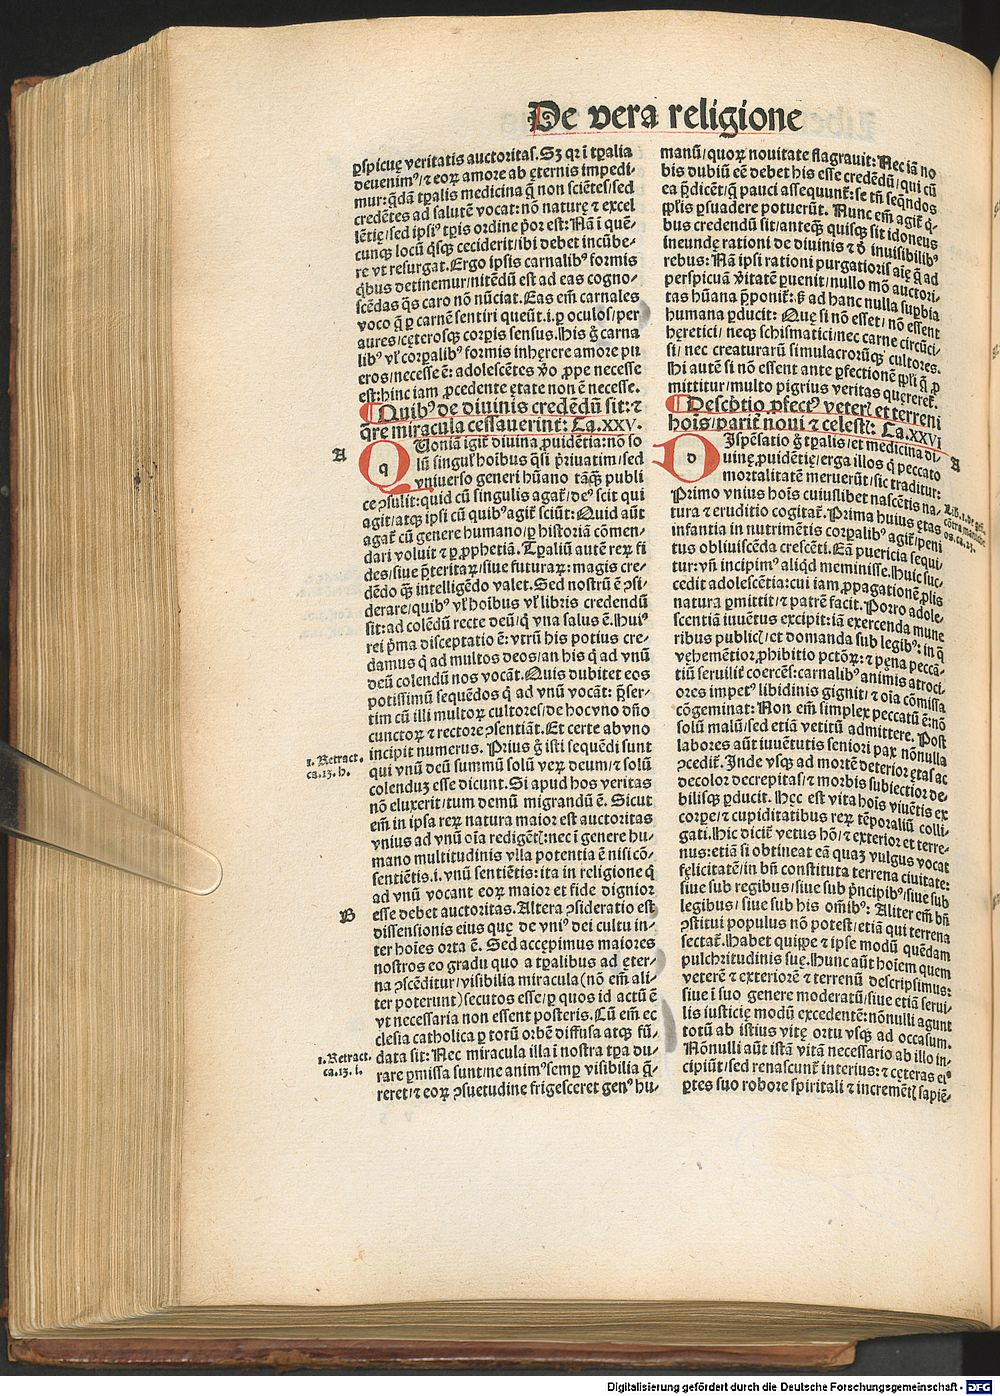 De vera religione
ꝑspicuę veritatis auctoritas. Sꝫ qꝛ ī tꝑalia
deuenimꝰ/ ⁊ eoꝝ amore ab ęternis impedi-
mur: q̄dā tꝑalis medicina q̄ non sciētes/ sed
credētes ad salutē vocat: nō naturę ⁊ excel
lētię/ sed ipsiꝰ tꝑis ordine p̄or est: Nā ī quē-
cunqꝫ locū q̇sqꝫ ceciderit/ ibi debet incūbe-
re vt resurgat. Ergo ipsis carnalibꝰ formis
q̇bus detinemur/ nitēdū est ad eas cogno-
scēdas q̄s caro nō nūciat. Eas em̄ carnales
voco q̄ ꝑ carnē sentiri queūt .i. ꝑ oculos/ per
aures/ cęterosqꝫ corꝑis sensus. His g̊ carna
libꝰ vł corꝑalibꝰ formis inhęrere amore pu
eros/ necesse ē: adolescētes v̊o ꝓpe necesse
est: hinc iam ꝓcedente ętate non ē necesse.
Quibꝰ de diuinis credēdū sit: ⁊
q̄re miracula cessauerint: Ca. XXV.
A
q
QUoniā igit᷑ diuina ꝓuidētia: nō so
lū singul᷒ hoībus q̄si p̄riuatim/ sed
vniuerso generi hūano tāqꝫ publi
ce ꝯsulit: quid cū singulis agat᷑/ deꝰ scit qui
agit/ atqꝫ ipsi cū quibꝰ agit᷑ sciūt: Quid aūt
agat᷑ cū genere humano/ ꝑ historiā cōmen-
dari voluit ⁊ ꝑ ꝓphetiā. Tꝑaliū autē reꝝ fi
des/ siue p̄teritaꝝ/ siue futuraꝝ: magis cre-
dēdo qꝫ intelligēdo valet. Sed nostrū ē ꝯsi-
derare/ quibꝰ vł hoībus vł libris credendū
sit: ad colēdū recte deū/ q̄ vna salus ē. Huiꝰ
rei p̄ma disceptatio ē: vtrū his potius cre-
damus q̇ ad multos deos/ an his q̇ ad vnū
deū colendū nos vocāt. Quis dubitet eos
potissimū sequēdos q̇ ad vnū vocāt: p̄ser-
tim cū illi multoꝝ cultores/ de hoc vno dn̄o
cunctoꝝ ⁊ rectore ꝯsentiāt. Et certe ab vno
incipit numerus. Prius g̊ isti sequēdi sunt
qui vnū deū summū solū veꝝ deum/ ⁊ solū
colenduꝫ esse dicunt. Si apud hos veritas
nō eluxerit/ tum demū migrandū ē. Sicut
em̄ in ipsa reꝝ natura maior est auctoritas
vnius ad vnū oīa redigētl᷒: nec ī genere hu-
mano multitudinis vlla potentia ē nisi cō-
sentiētis .i. vnū sentiētis: ita in religione q̇
ad vnū vocant eoꝝ maior et fide dignior
esse debet auctoritas. Altera ꝯsideratio est
dissensionis eius quę de vniꝰ dei cultu in-
ter hoīes orta ē. Sed accępimus maiores
nostros eo gradu quo a tꝑalibus ad ęter-
na ꝯscēditur/ visibilia miracula (nō em̄ ali-
ter poterunt) secutos esse/ ꝑ quos id actū ē
vt necessaria non essent posteris. Cū em̄ ec
clesia catholica ꝑ totū orbē diffusa atqꝫ fū-
data sit: Nec miracula illa ī nostra tꝑa du-
rare ꝑmissa sunt/ ne animꝰ semꝑ visibilia q̄-
reret/ ⁊ eoꝝ ꝯsuetudine frigesceret genꝰ hu-
1. Retract.
ca. 13. h.
B
1. Retract.
ca. 13. i.
manū/ quoꝝ nouitate flagrauit: Nec iā no
bis dubiū eē debet his esse credēdū/ qui cū
ea p̄dicēt/ q̄ pauci assequunt᷑: se tn̄ seq̄ndos
ppl̄is ꝑsuadere potuerūt. Nunc em̄ agit᷑ q̇-
bus credendū sit/ anteqꝫ quisqꝫ sit idoneus
ineundę rationi de diuinis ⁊ d̄ inuisibilibꝰ
rebus: Nā ipsi rationi purgatioris aīę q̄ ad
perspicuā v̊itatē ꝑuenit/ nullo mō auctori-
tas hūana p̄ponit᷑: ꝫ ad hanc nulla suꝑbia
humana ꝑducit: Quę si nō esset/ nō essent
hęretici/ neqꝫ schismatici/ nec carne circūci-
si/ nec creaturarū simulacrorūqꝫ cultores.
Hi autē si nō essent ante ꝑfectionē ppl̄i q̄ ꝓ
mittitur/ multo pigrius veritas quęreret᷑.
Descp̄tio ꝑfectꝰ veterl᷒ et terreni
hoīs/ parit᷑ noui ⁊ celestl᷒: Ca. XXVI
A
d
DIspēsatio g̊ tꝑalis/ et medicina di-
uinę ꝓuidētię/ erga illos q̇ peccato
mortalitatē meruerūt/ sic traditur:
Primo vnius hoīs cuiuslibet nascētis na-
tura ⁊ eruditio cogitat᷑. Prima huius ętas
infantia in nutrimētis corꝑalibꝰ agit᷑/ peni
tus obliuiscēda crescēti. Eā puericia sequi
tur: vn̄ incipimꝰ aliq̇d meminisse. Huic suc-
cedit adolescētia: cui iam ꝓpagationē ꝓlis
natura ꝑmittit/ ⁊ patrē facit. Porro adole-
scentiā iuuētus excipit: iā exercenda mune
ribus publicl᷒/ et domanda sub legibꝰ: in q̄
vęhemētior ꝓhibitio pctōꝝ: ⁊ pęna peccā-
tiū seruilit᷑ coercēs: carnalibꝰ animis atroci-
ores impetꝰ libidinis gignit/ ⁊ oīa cōmissa
cōgeminat: Non em̄ simplex peccatū ē: nō
solū malū/ sed etiā vetitū admittere. Post
labores aūt iuuētutis seniori pax nōnulla
ꝯcedit᷑. Inde vsqꝫ ad mortē deterior ętas ac
decolor decrepitas/ ⁊ morbis subiectior de-
bilisqꝫ ꝑducit. Hęc est vita hoīs viuētis ex
corꝑe/ ⁊ cupiditatibus reꝝ tēporaliū colli-
gati. Hic dicit᷑ vetus hō/ ⁊ exterior et terre-
nus: etiā si obtineat eā quaꝫ vulgus vocat
fęlicitatē/ in bn̄ constituta terrena ciuitate:
siue sub regibus/ siue sub p̄ncipibꝰ/ siue sub
legibus/ siue sub his om̄ibꝰ: Aliter em̄ bn̄
ꝯstitui populus nō potest/ etiā qui terrena
sectat᷑. Habet quippe ⁊ ipse modū quēdam
pulchritudinis suę. Hunc aūt hoīem quem
veterē ⁊ exteriorē ⁊ terrenū descripsimus:
siue ī suo genere moderatū/ siue etiā serui-
lis iusticię modū excedentē: nōnulli agunt
totū ab istius vitę ortu vsqꝫ ad occasum.
Nōnulli aūt istā vitā necessario ab illo in-
cipiūt/ sed renascunt᷑ interius: ⁊ cęteras eiꝰ
ꝑtes suo robore spiritali ⁊ incremētl᷒ sapiē-
Digitalisierung gefördert durch die Deutsche Forschungsgemeinschaft - DFG